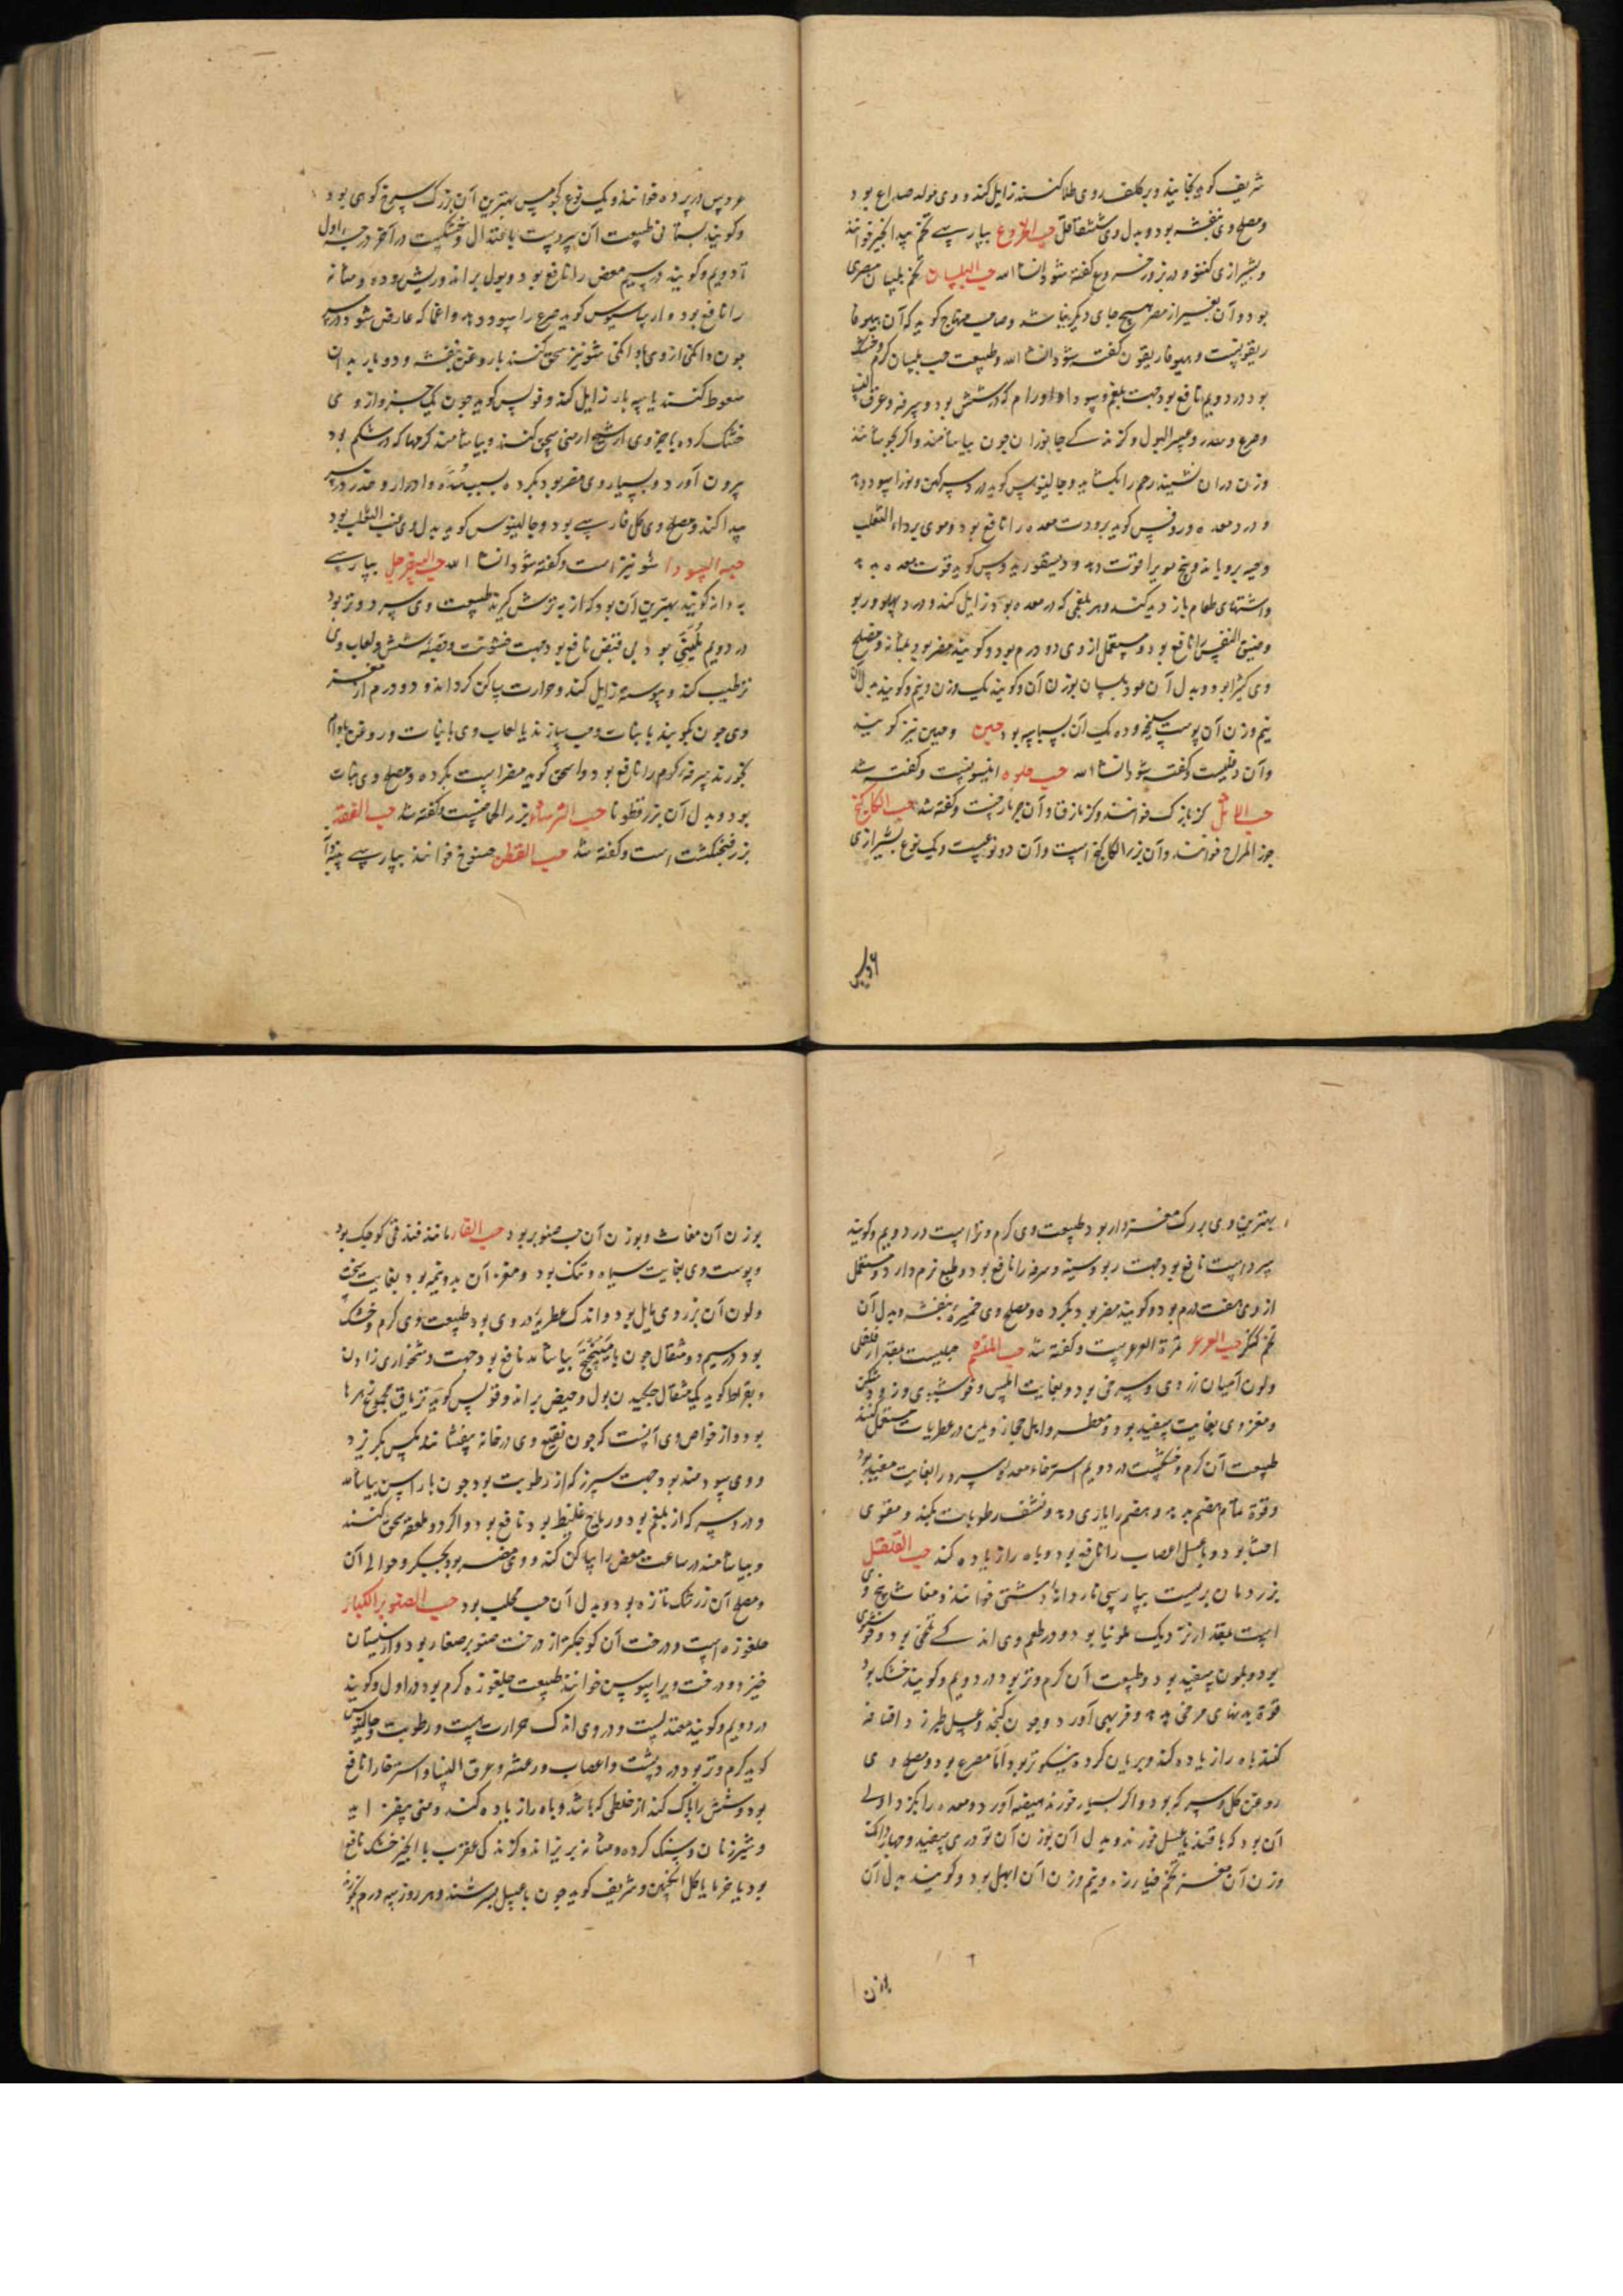 شریف کوید بخایند و بر کلف روی طلا کنند زایل کند و وی مولد صداع بود
ومصلح وی بنفشه بود وبدل وی حب الخروع بپارسی تخم بیدانجیر خوانند
وبشیرازی کنتو ودر در خروع کفته شود انشا الله حب البلسان تخم بلسان مصری
بود وآن بغیر از مصر هیچ جای دیکر نباشد وصاحب منهاج کوید که آن هیوفا
ریقونست وهیوفاریقون کفته شود انشا الله وطبیعت حب بلسان کرم وخشک
بود در دویم نافع بود جهت بلغم وسودا واورام که در شش بود وسرفه وعرق النسا
وصرع وسدر وعسر البول وکزندکی جانوران چون بیاشامند واکر بجوشانند
وزن دران نشیند رحم را بکشاید وجالینوس کوید درد سر کهن ونو را سود دهد
ودرد معده وروفس کوید برودت معده را نافع بود وموی برداء الثعلب
وحیه برویاند وبیخ مو را قوت دهد ودیسقوریدوس کوید قوت معده بدهد
واشتهای طعام بازدید کند وهر بلغمی که در معده بود زایل کند ودرد پهلو وربو
وضیق النفس را نافع بود ومستعمل از وی دو درم بود وکویند مضر بود بمثانه ومصلح
وی کثیرا بود وبدل آن عود بلسان بوزن آن وکویند یک وزن ونیم وکویند بدل آن
نیم وزن آن پوست سلیخه وده یک آن بسباسه بود حبن وحبین نیز کویند
وآن دفلیست وکفته شود انشا الله حب حلوه انیسونست وکفته شد
حب الاثل کزبازک خوانند وکزمازق وآن جزمازجست وکفته شد حب الکاکنج
جوز المرج خوانند وآن بزر الکاکنج است وآن دو نوعیست ویک نوع بشیرازی
عروس در پرده خوانند ویک نوع کوهیست بهترین آن بزرک سرخ کوهی بود
وکویند بستانی طبیعت آن سردیست باعتدال وخشکیست در آخر درجه اول
تا دویم وکویند در سیم معض را نافع بود وبول براند وریش روده ومثانه
را نافع بود ارساسیوس کوید صرع را سود دهد واغما که عارض شود در سر
چون دانکی از وی با دانکی شونیز سحق کنند با روغن بنفشه ودوبار بدان
سعوط کنند یا سه بار زایل کند وفولس کوید چون یک جزو از وی
خشک کرده با جزوی از شیح ارمنی سحق کنند وبیاشامند کرمها که در شکم بود
بیرون آورد وبسیار وی مضر بود بکرده بسبب شدة وادرار وخدر در سر
پیدا کند ومصلح وی کل فارسی بود وجالینوس کوید بدل وی عنب الثعلب بود
حبه السودا شونیز است وکفته شود انشا الله حب السفرجل بپارسی
به دانه کویند بهترین آن بود که از به ترش کیرند طبیعت وی سرد وتر بود
در دویم مُلَیّن بود بی قبض نافع بود جهت خشونت وقصبه شش ولعاب وی
ترطیب کند ویبوسة زایل کند وحرارت ساکن کرداند ودو درم از مغز
وی چون بکوبند با نبات وحب سازند یا لعاب وی با نبات وروغن بادام
بخورند سرفه کرم را نافع بود واسحق کوید مضر است بکرده ومصلح وی نبات
بود وبدل آن بزر قطونا حب الرشاد بزر الحماضست وکفته شد حب الفقد
بزر فنجنکشت است وکفته شد حب القطن خنسفوج خوانند بپارسی پنبه دانه
بهترین وی بزرک مغز دار بود طبیعت وی کرم وتر است در دویم وکویند
سرد است نافع بود جهت ربو وسینه وسرفه را نافع بود وطبع نرم دارد ومستعمل
از وی هفت درم بود وکویند مضر بود بکرده ومصلح وی خمیره بنفشه وبدل آن
تخم کنکر حب العرعر ثمرة العرعر است وکفته شد حب المنشم حبیست بمقدار فلفلی
ولون آن میان زردی وسرخی بود وبغایت املس وخوشبوی وزودشکن
ومغز وی بغایت سفید بود ومعطر واهل حجاز ویمن در عطریات مستعمل کنند
طبیعت آن کرم وخشکست در دویم استرخاء معده سرد را بغایت مفید بود
وقوة تمام هضم بدهد وهضم را یاری دهد ونشف رطوبات بکند ومقوی
احشا بود وبا عسل اعصاب را نافع بود وباه را زیاده کند حب القلقل
بزر رمان بریست بپارسی ناردانه دشتی خوانند ومغاث بیخ وی
است بمقدار نزدیک بلوبیا بود ودر طعم وی اندکی تلخی بود وخوشبوی
بود وبلون سفید بود وطبیعت آن کرم وتر بود در دویم وکویند خشک بود
قوة بدنهای مرخی بدهد وفربهی آورد وچون کنجد وعسل طبرزد اضافه
کنند باه را زیاده کند وبریان کرده نیکوتر بود اما مصدع بود ومصلح وی
روغن کل وسرکه بود واکر بسیار خورند هیضه آورد ومعده را بکزد اولی
آن بود که با قند یا عسل خورند وبدل آن بوزن آن تودری سفید وچهار دانکه
وزن آن مغز تخم خیارزه ونیم وزن آن ابهل بود وکویند بدل آن
بوزن آن مغاث وبوزن آن حب صنوبر بود حب الفار مانند فندقی کوچک بود
وپوست وی بغایت سیاه وتنک بود ومغز آن بدو نیمه بود بغایت سخت
ولون آن بزردی مایل بود واندک عطریة در وی بود طبیعت وی کرم وخشک
بود در سیم دو مثقال چون با مَیبُختَج بیاشامند نافع بود جهت دشخواری زادن
وبقراط کوید یک مثقال چکیدن بول وحیض براند وفولس کوید تریاق مجموع زهرها
بود واز خواص وی آنست که چون نقیع وی در خانه بیفشانند مکس بکریزد
ووی سودمند بود جهت سپرز که از رطوبت بود چون با راسن بیاشامند
ودرد سر که از بلغم بود وریاح غلیظ بود نافع بود واکر دو ملعقه سحق کنند
وبیاشامند در ساعت مغص را ساکن کند ووی مضر بود بجکر وحوالی آن
ومصلح آن زرشک تازه بود وبدل آن حب محلب بود حب الصنوبر الکبار
جلغوزه است ودرخت آن کوچکتر از درخت صنوبر صغار بود واز سیستان
خیزد ودرخت ویرا سوس خوانند طبیعت جلغوزه کرم بود در اول وکویند
در دویم وکویند معتدلست ودر وی اندک حرارت است ورطوبت وجالینوس
کوید کرم وتر بود درد پشت واعصاب ورعشه وعرق النسا واسترخا را نافع
بود وشش را پاک کند از خلطی که باشد وباه را زیاده کند ومنی بیفزاید
وشیر زنان وسنک کرده ومثانه بریزاند وکزندکی عقرب با انجیر خشک نافع
بود یا خرما یا کل انکبین وشریف کوید چون با عسل بسرشند وهر روز سه درم بخورند